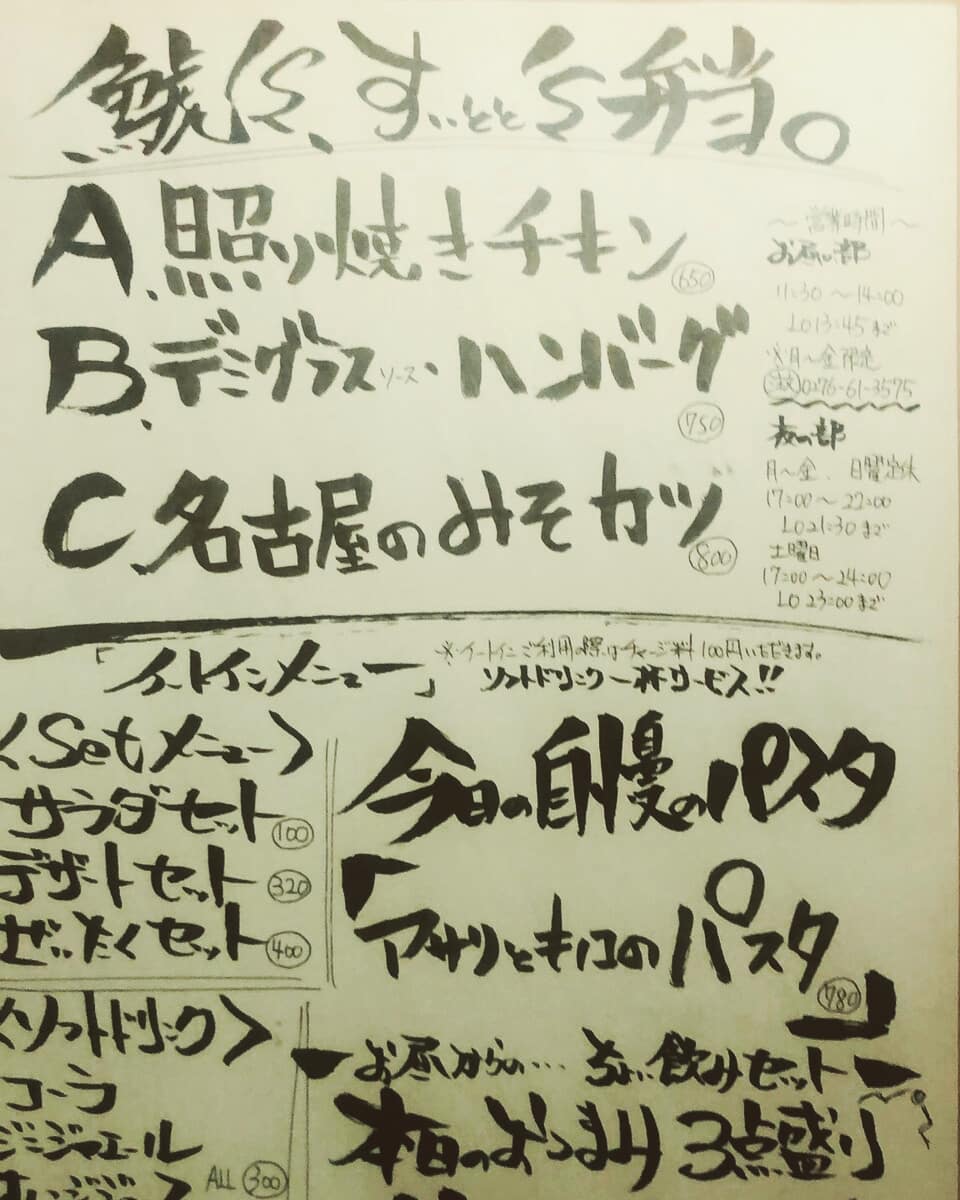 すぃーとと弁当。
A.照り焼きチキン 650
B.デミグラスソース・ハンバーグ 750
C.名古屋のみそカツ 800
〜営業時間〜
お昼の部
11:30〜14:00
LO13:45まで
※月〜金限定
0276-61-3575
夜の部
月〜金、日曜定休
17:00〜22:00
LO21:30まで
土曜日
17:00〜24:00
LO 23:00まで
「イートインメニュー」
※イートインご利用の際はチャージ料100円いただきます。
ソフトドリンク一杯サービス!!
<Setメニュー>
サラダセット 100
デザートセット 320
ぜいたくセット 400
<ソフトドリンク>
コーラ
ジンジャエール
ALL 300
今日の自慢のパスタ
「アサリとキノコのパスタ」 780
お昼からの…ちょい飲みセット
本日のおつまみ3点盛り